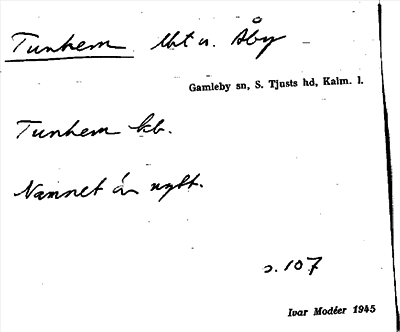 Tunhem lht u. Åby
Gamleby sn, S. Tjusts hd, Kalm. l.
Tunhem kb.
Namnet är nytt.
s. 107
Ivar Modéer 1945